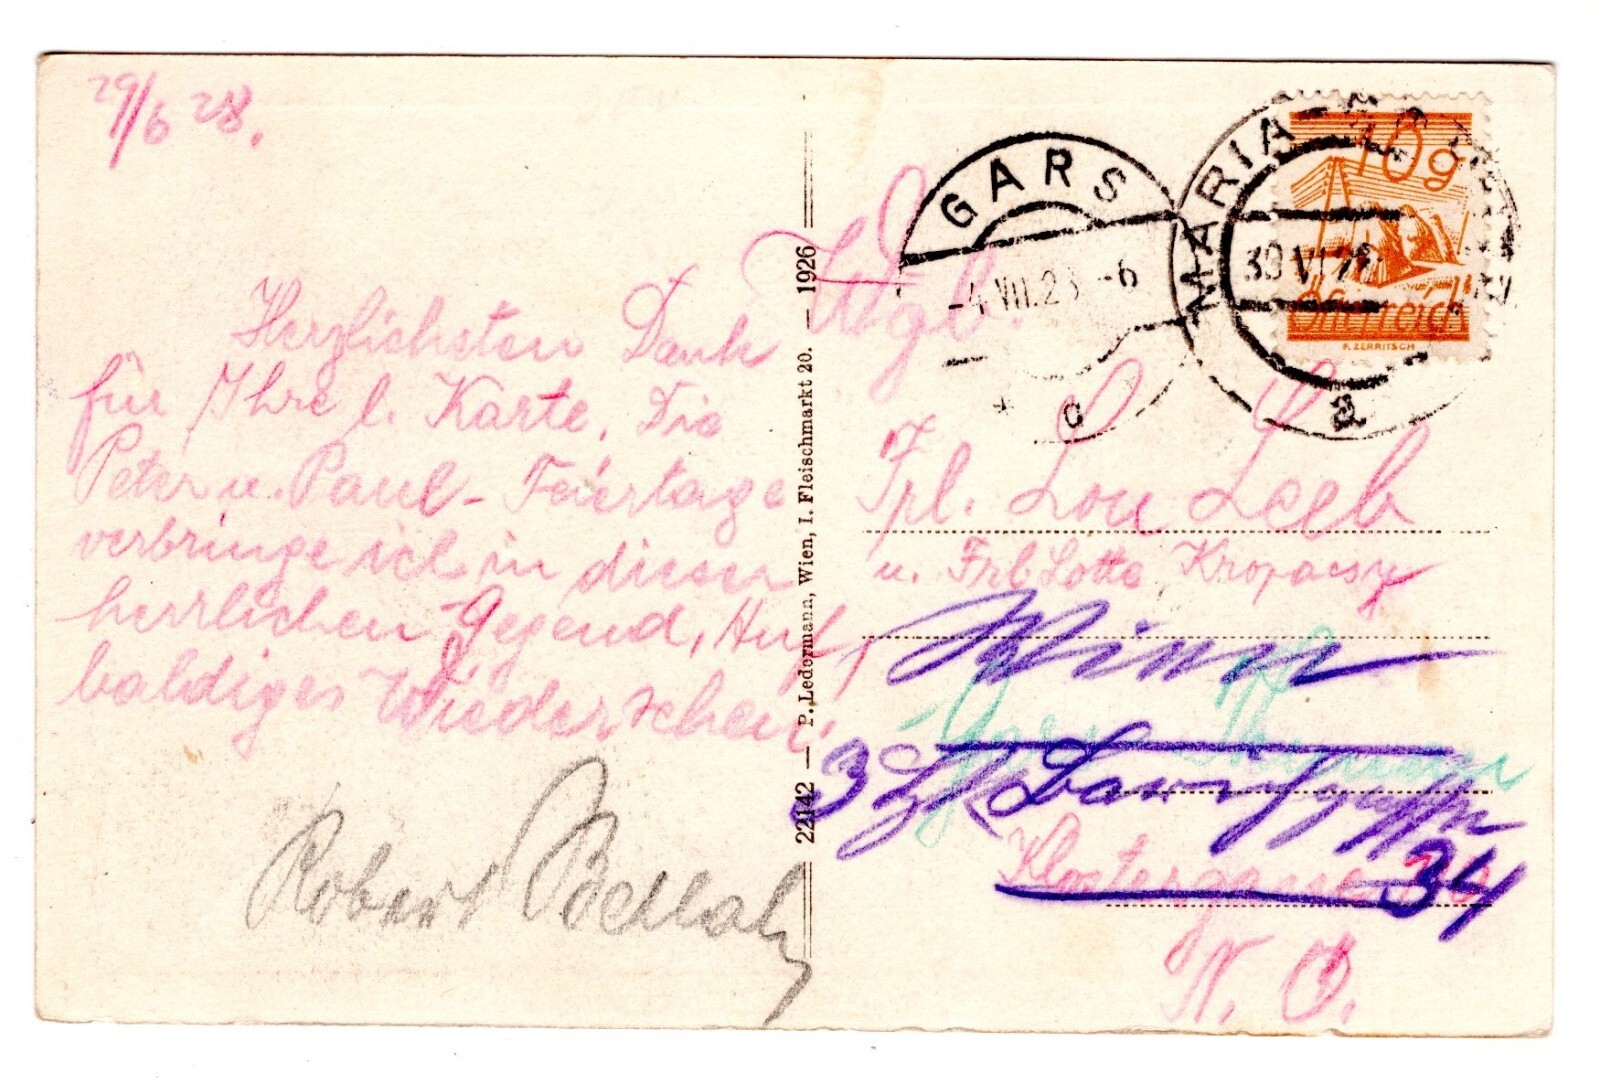 29/6 28.
Herzlichsten Dank
für Ihre l. Karte. Die
Peter u. Paul-Feiertage
verbringe ich in dieser
herrlichen Gegend. Auf
baldiges Wiedersehen!
Robert
22142 — P. Ledermann, Wien, I. Fleischmarkt 20. — 1926
GARS
-4 VII.28 -6
* c
MARIA
30 VI 28
a
10g
Österreich
R. ZERRITSCH
Wgb.
Frl. Lou Loeb
u. Frl. Lotte Kropacsy
Wien
Gars
3
34
Klostergasse
N. Ö.